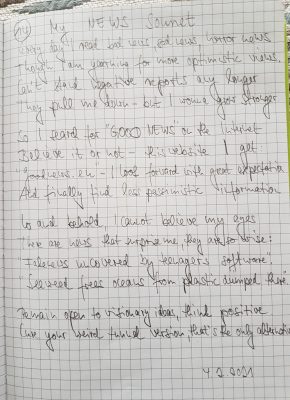 My NEWS Sonnet
Every day I read bad news, sad news, horror news
Though I am yearning for more optimistic views.
Can't stand negative reports any longer
They pull me down - but I wanna grow stronger
So I search for "GOOD NEWS" on the Internet
Believe it or not - this website I get
"Goodnews.eu - I look forward with great expectation
And finally find less pessimistic information
Lo and behold, I cannot believe my eyes
There are news that inspire me, they are so wise:
"Fakenews uncovered by teenager's software"
"Seaweed frees oceans from plastic dumped there"
Remain open to visionary ideas, think positive
Cure your weird tunnel version, that's the only alternative
4.2.2021